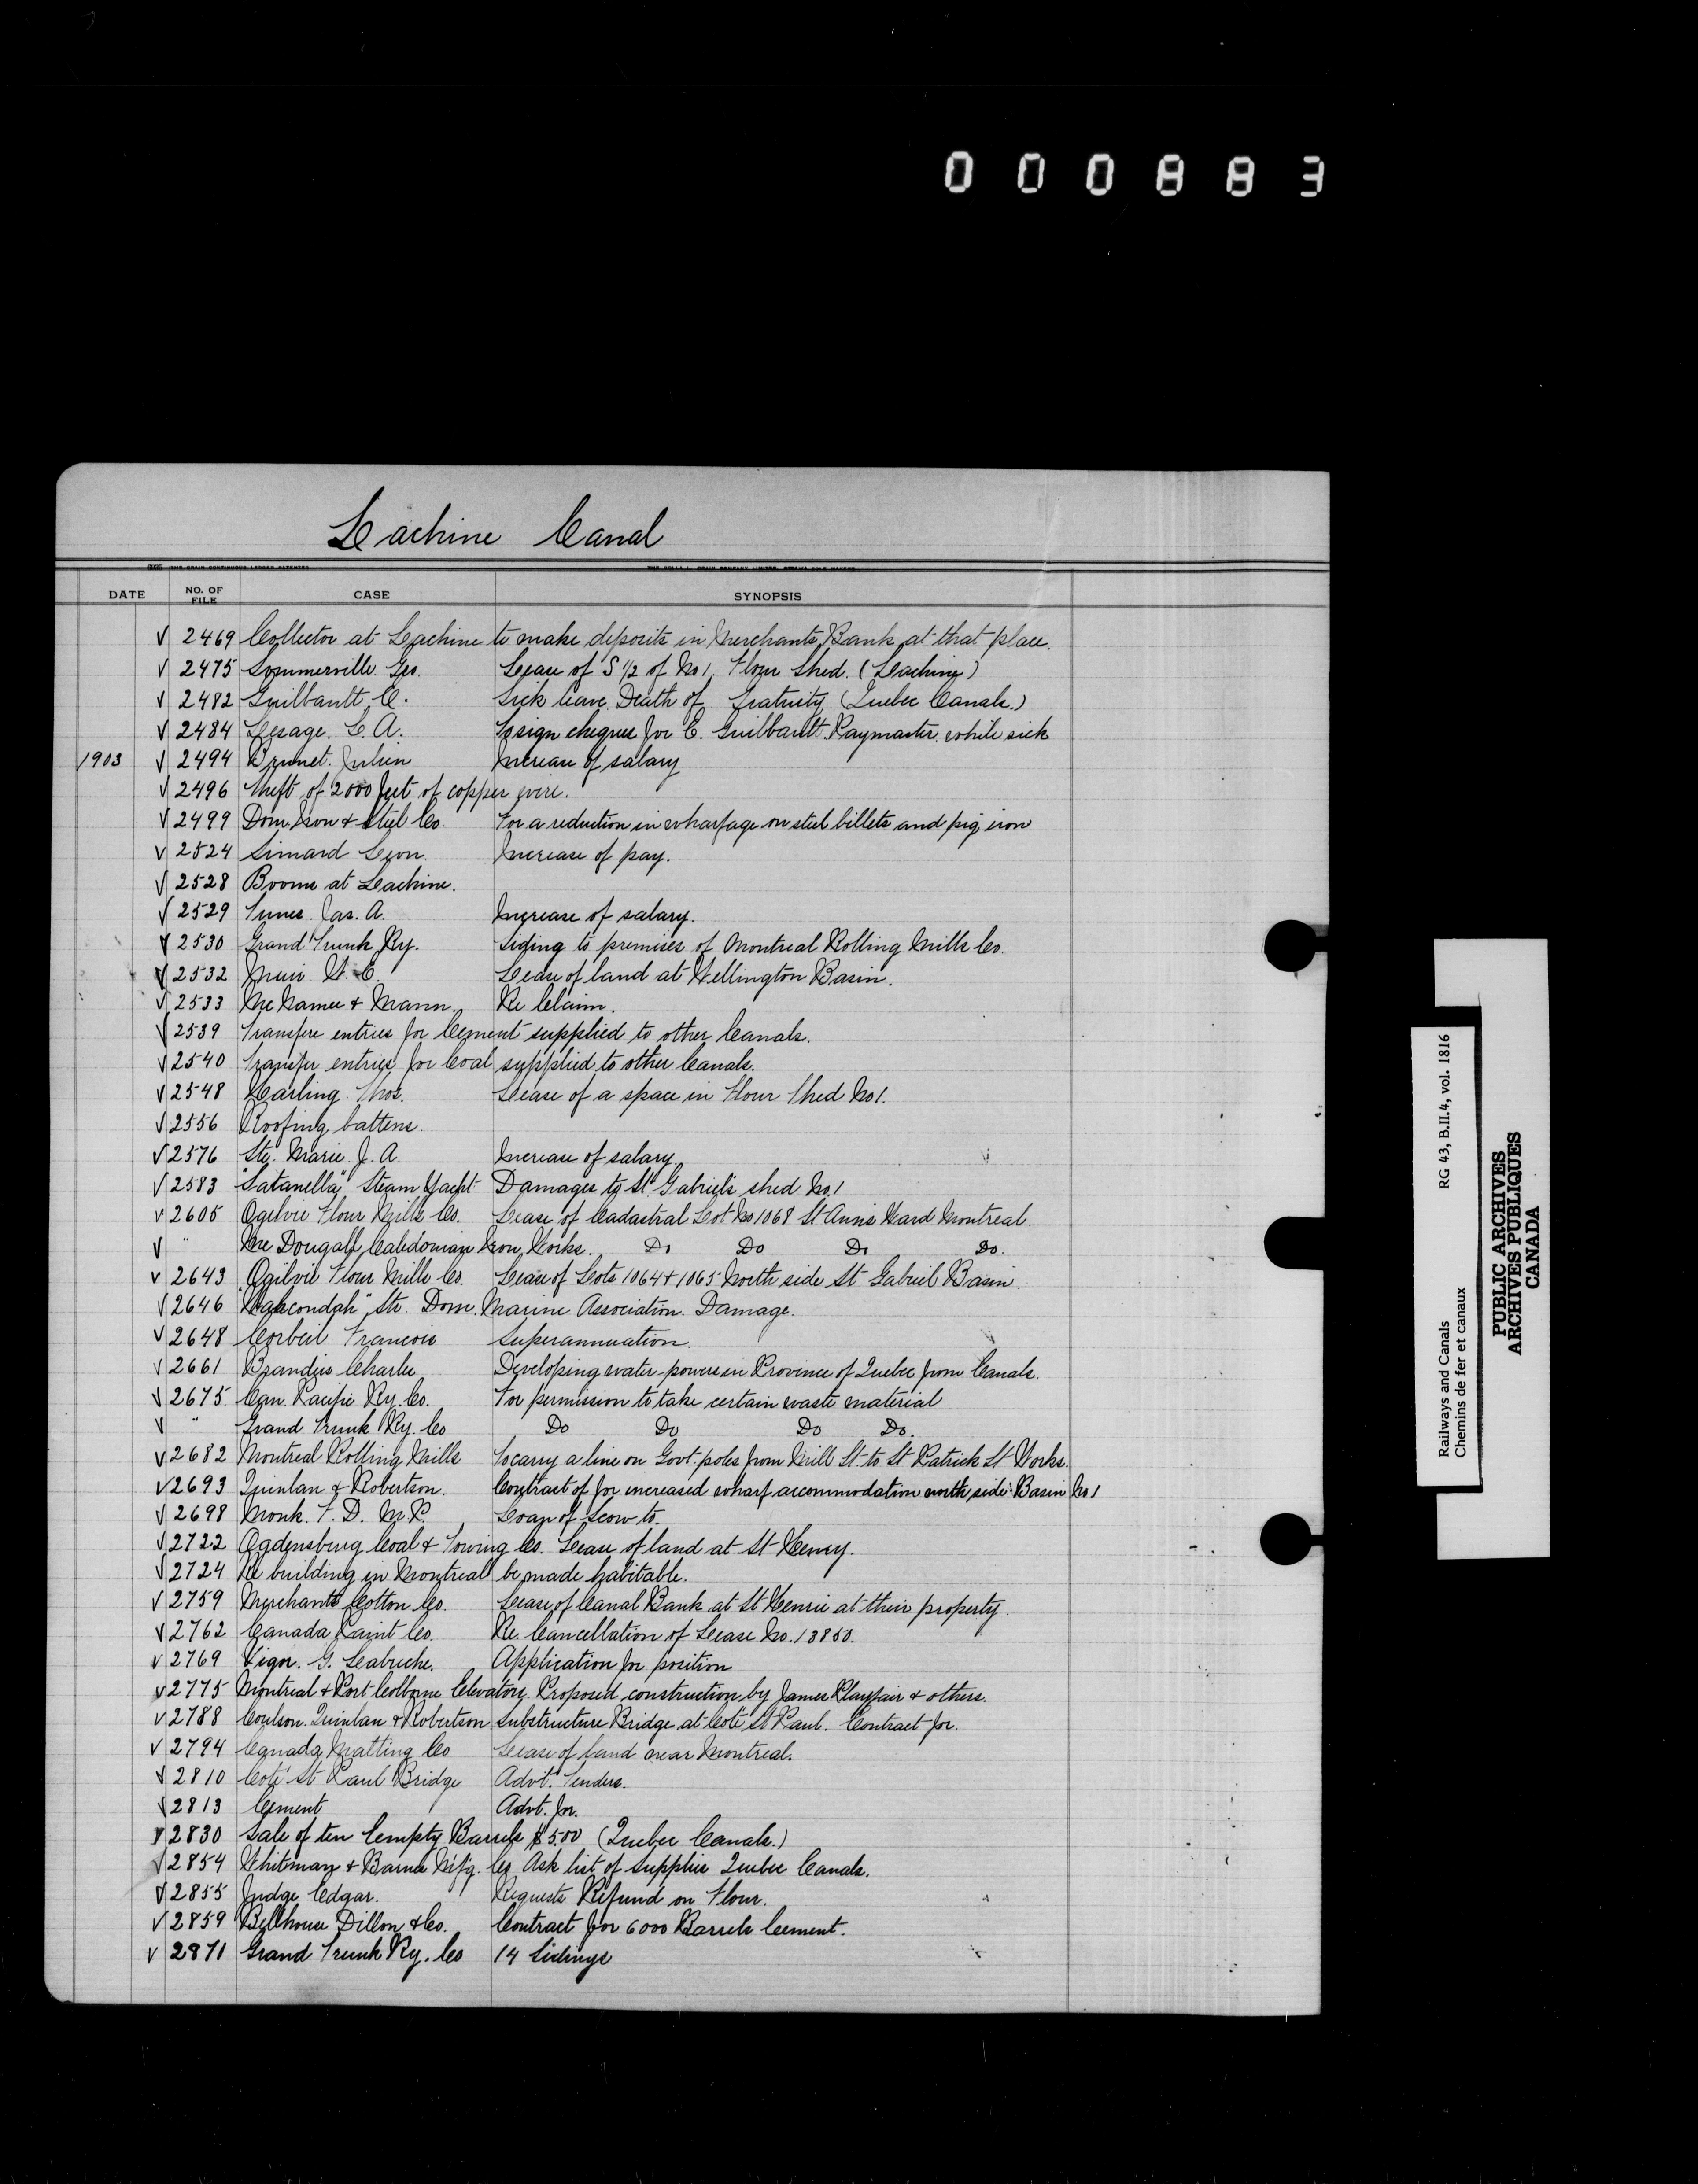 000883
Lachine Canal
DATE NO. OF FILE CASE SYNOPSIS
V 2469 Collector at Lachine to make deposits in Merchants Bank at that place.
V 2475 Sommerville Geo. Lease of S 1/2 of No 1, Flour Shed. (Lachine)
V 2482 Guilbault, C. Sick leave. Death of Gratuity (Quebec Canals.)
V 2484 Lesage. L. A. To sign cheques for C. Guilbault. Paymaster. while sick
1903 V 2494 Brunet. Julien Increase of salary
V 2496 Theft of 2000 feet of copper wire.
V 2499 Dom. Iron & Steel Co. For a reduction in wharfage on steel billets and pig iron
V 2524 Simard Leon. Increase of pay.
V 2528 Booms at Lachine.
V 2529 Innes. Jas. A. Increase of salary.
V 2530 Grand Trunk Ry. Siding to premises of Montreal Rolling Mills Co.
V 2532 Muir W. C. Lease of land at Wellington Basin.
V 2533 McNamee & Mann. Re Claim.
V 2539 Transfere entries for Cement supplied to other Canals.
V 2540 Transfer entries for Coal supplied to other Canals.
V 2548 Harling Thos. Lease of a space in Flour Shed No 1.
V 2556 Roofing battens.
V 2576 Ste. Marie. J. A. Increase of salary.
V 2583 "Satanella" Steam Yacht Damages to St. Gabriels shed No. 1
V 2605 Ogilvie Flour Mills Co. Lease of Cadastral Lot No 1068 St Anns Ward Montreal.
V " McDougall Caledonian Iron Works. Do Do Do Do.
V 2643 Ogilvie Flour Mills Co. Lease of Lots 1064 & 1065 North side St Gabriel Basin.
V 2646 "Wahcondah" Str. Dom. Marine Association. Damage.
V 2648 Corbeil Francois Superannuation.
V 2661 Brandeis Charles Developing water powers in Province of Quebec from Canals.
V 2675 Can. Pacific Ry. Co. For permission to take certain waste material
V " Grand Trunk Ry. Co Do Do Do Do.
V 2682 Montreal Rolling Mills To carry a line on Govt. poles from Mill St. to St Patrick St Works.
V 2693 Quinlan & Robertson. Contract of for increased wharf accommodation north side Basin No 1
V 2698 Monk. F. D. M.P. Loan of Scow to.
V 2722 Ogdensburg Coal & Towing Co. Lease of land at St Henry.
V 2724 Re building in Montreal be made habitable.
V 2759 Merchants Cotton Co. Lease of Canal Bank at St Henrie at their property.
V 2762 Canada Paint Co. Re. Cancellation of Lease No. 13850.
V 2769 Vigor. G. Labuche. Application for position
V 2775 Montreal & Port Colborne Elevators. Proposed construction by James Playfair & others.
V 2788 Coulson. Quinlan & Robertson Substructure Bridge at Coté St Paul. Contract for.
V 2794 Canada Malting Co Lease of land near Montreal.
V 2810 Coté St Paul Bridge Advt. Tenders.
V 2813 Cement Advt. for.
V 2830 Sale of ten Cempty Barrels $5.00 (Quebec Canals.)
V 2854 Whitman & Barnes Mf'g. Co. Ask list of supplies Quebec Canals.
V 2855 Judge Edgar. Requests Refund on Flour.
V 2859 Bellhouse Dillon & Co. Contract for 6000 Barrels Cement.
V 2871 Grand Trunk Ry. Co 14 Sidings
Railways and Canals RG 43, B.II.4, vol. 1816
Chemins de fer et canaux
PUBLIC ARCHIVES
ARCHIVES PUBLIQUES
CANADA